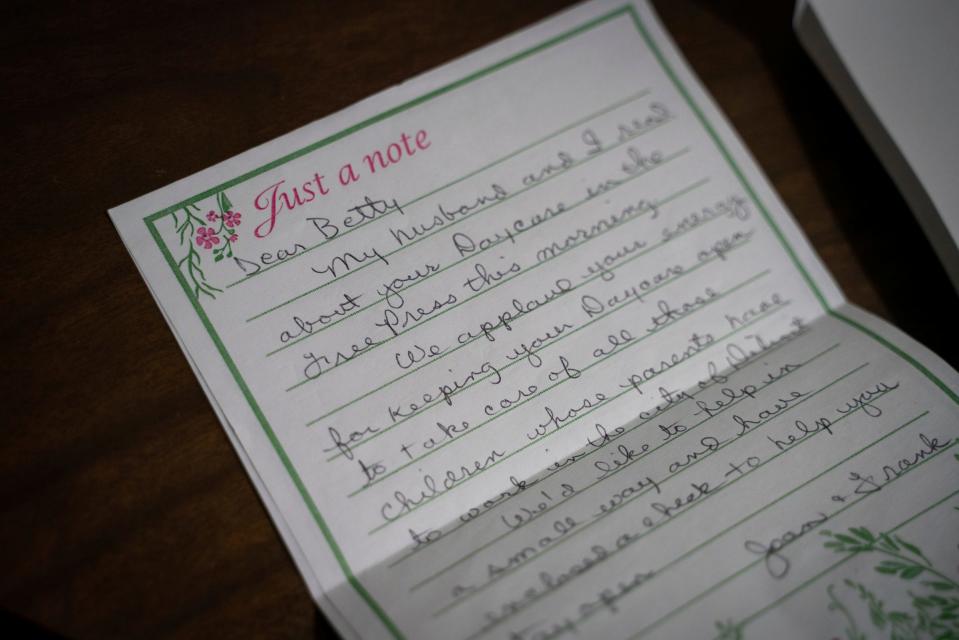 Just a note
Dear Betty
My husband and I read
about your Daycare in the
Free Press this morning
We applaud your energy
for keeping your Daycare open
to take care of all those
children whose parents have
to work in the city of Detroit
We'd like to help in
a small way and have
enclosed a check to help you
stay open
Joan & Frank